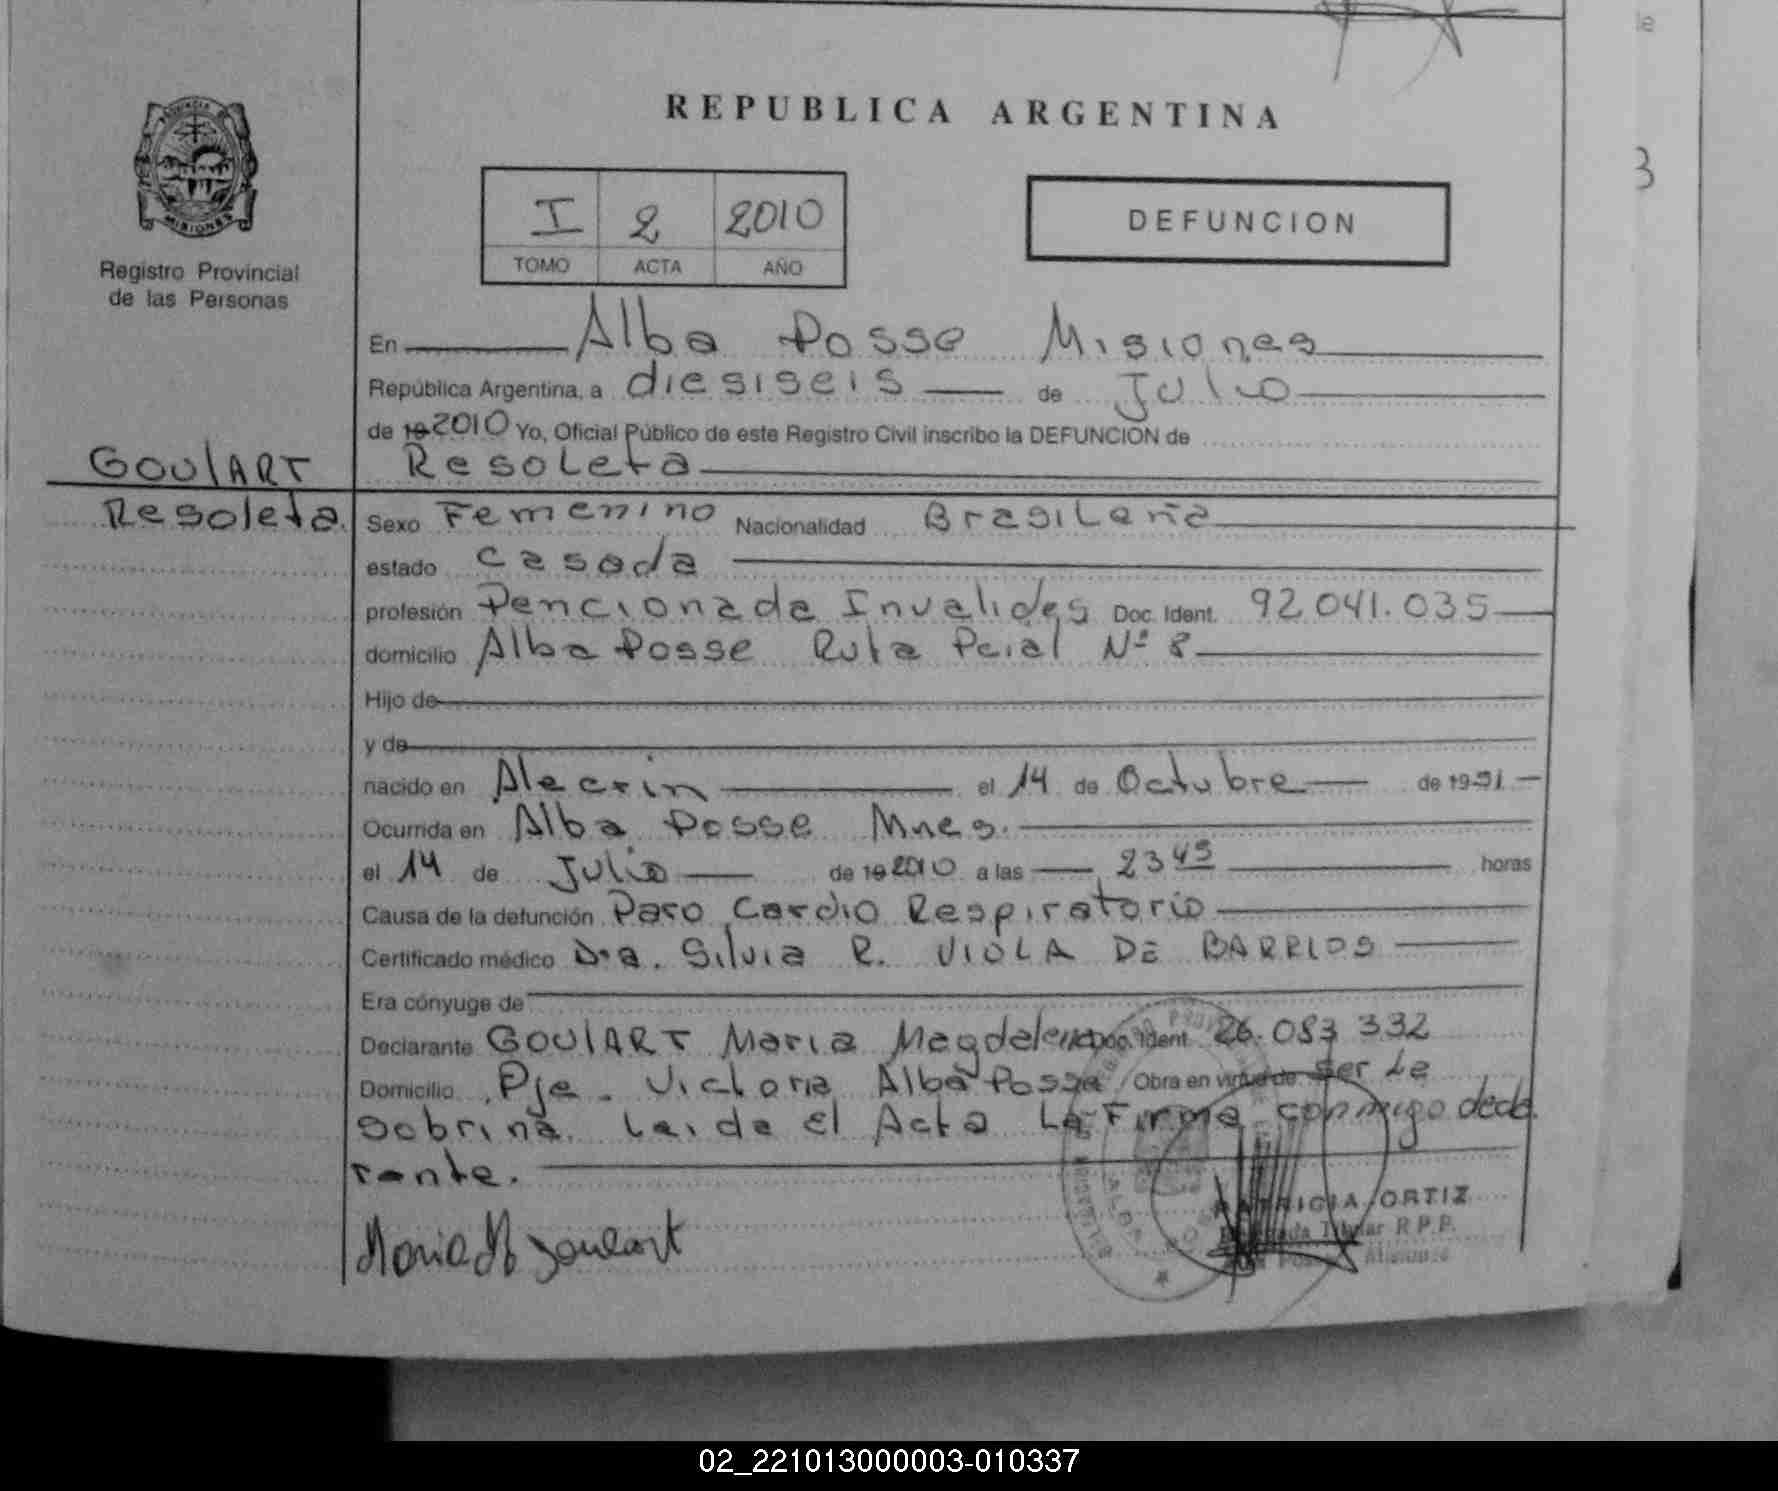 REPUBLICA ARGENTINA
PROVINCIA
MISIONES
Registro Provincial
de las Personas
I 2 2010
TOMO ACTA AÑO
DEFUNCION
3
En Alba Posse Misiones
República Argentina, a diesiseis de Julio
de 19 2010 Yo, Oficial Público de este Registro Civil inscribo la DEFUNCION de
GOULART
Resoleta
Resoleta.
Sexo Femenino Nacionalidad BrasiLeña
estado casada
profesión Pencionada Invalides Doc. Ident. 92.041.035
domicilio Alba Posse Ruta Pcial Nº 8
Hijo de
y de
nacido en Alecrin el 14 de Octubre de 19
Ocurrida en Alba Posse Mnes.
el 14 de Julio de 19 2010 a las 23 45 horas
Causa de la defunción Paro Cardio Respiratorio
Certificado médico Dra. Silvia R. VIOLA DE BARRIOS
Era cónyuge de
Declarante GOULART Maria Magdalena Doc. Ident. 26.083 332
Domicilio Pje. Victoria Alba Posse Obra en virtud de ser La
Sobrina. Leida el Acta La Firma conmigo decla
rante.
Maria M Goulart
PATRICIA ORTIZ
Titular R.P.P.
Misiones
02_221013000003-010337